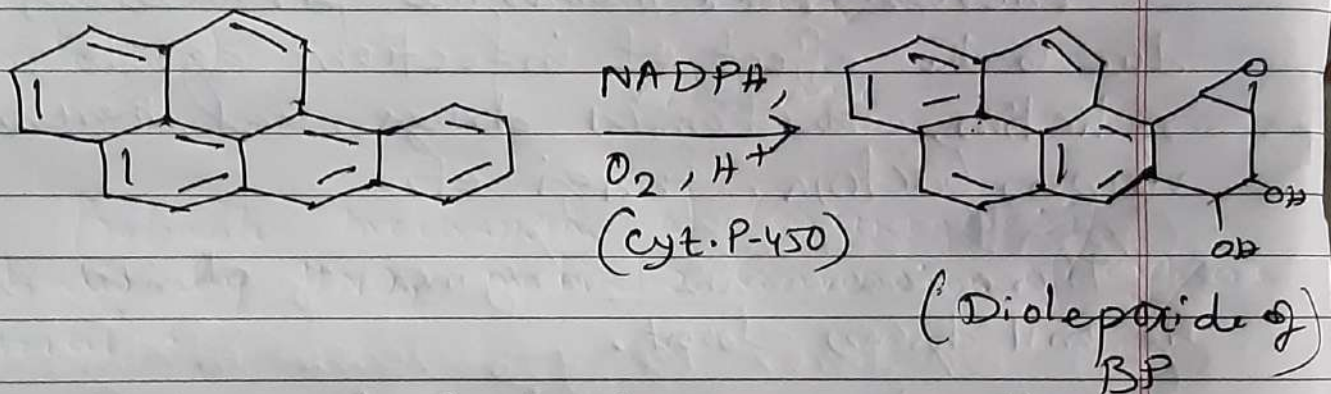 NADPH,
O₂, H⁺
(Cyt. P-450)
O
OH
OH
(Diolepoxide of
BP)